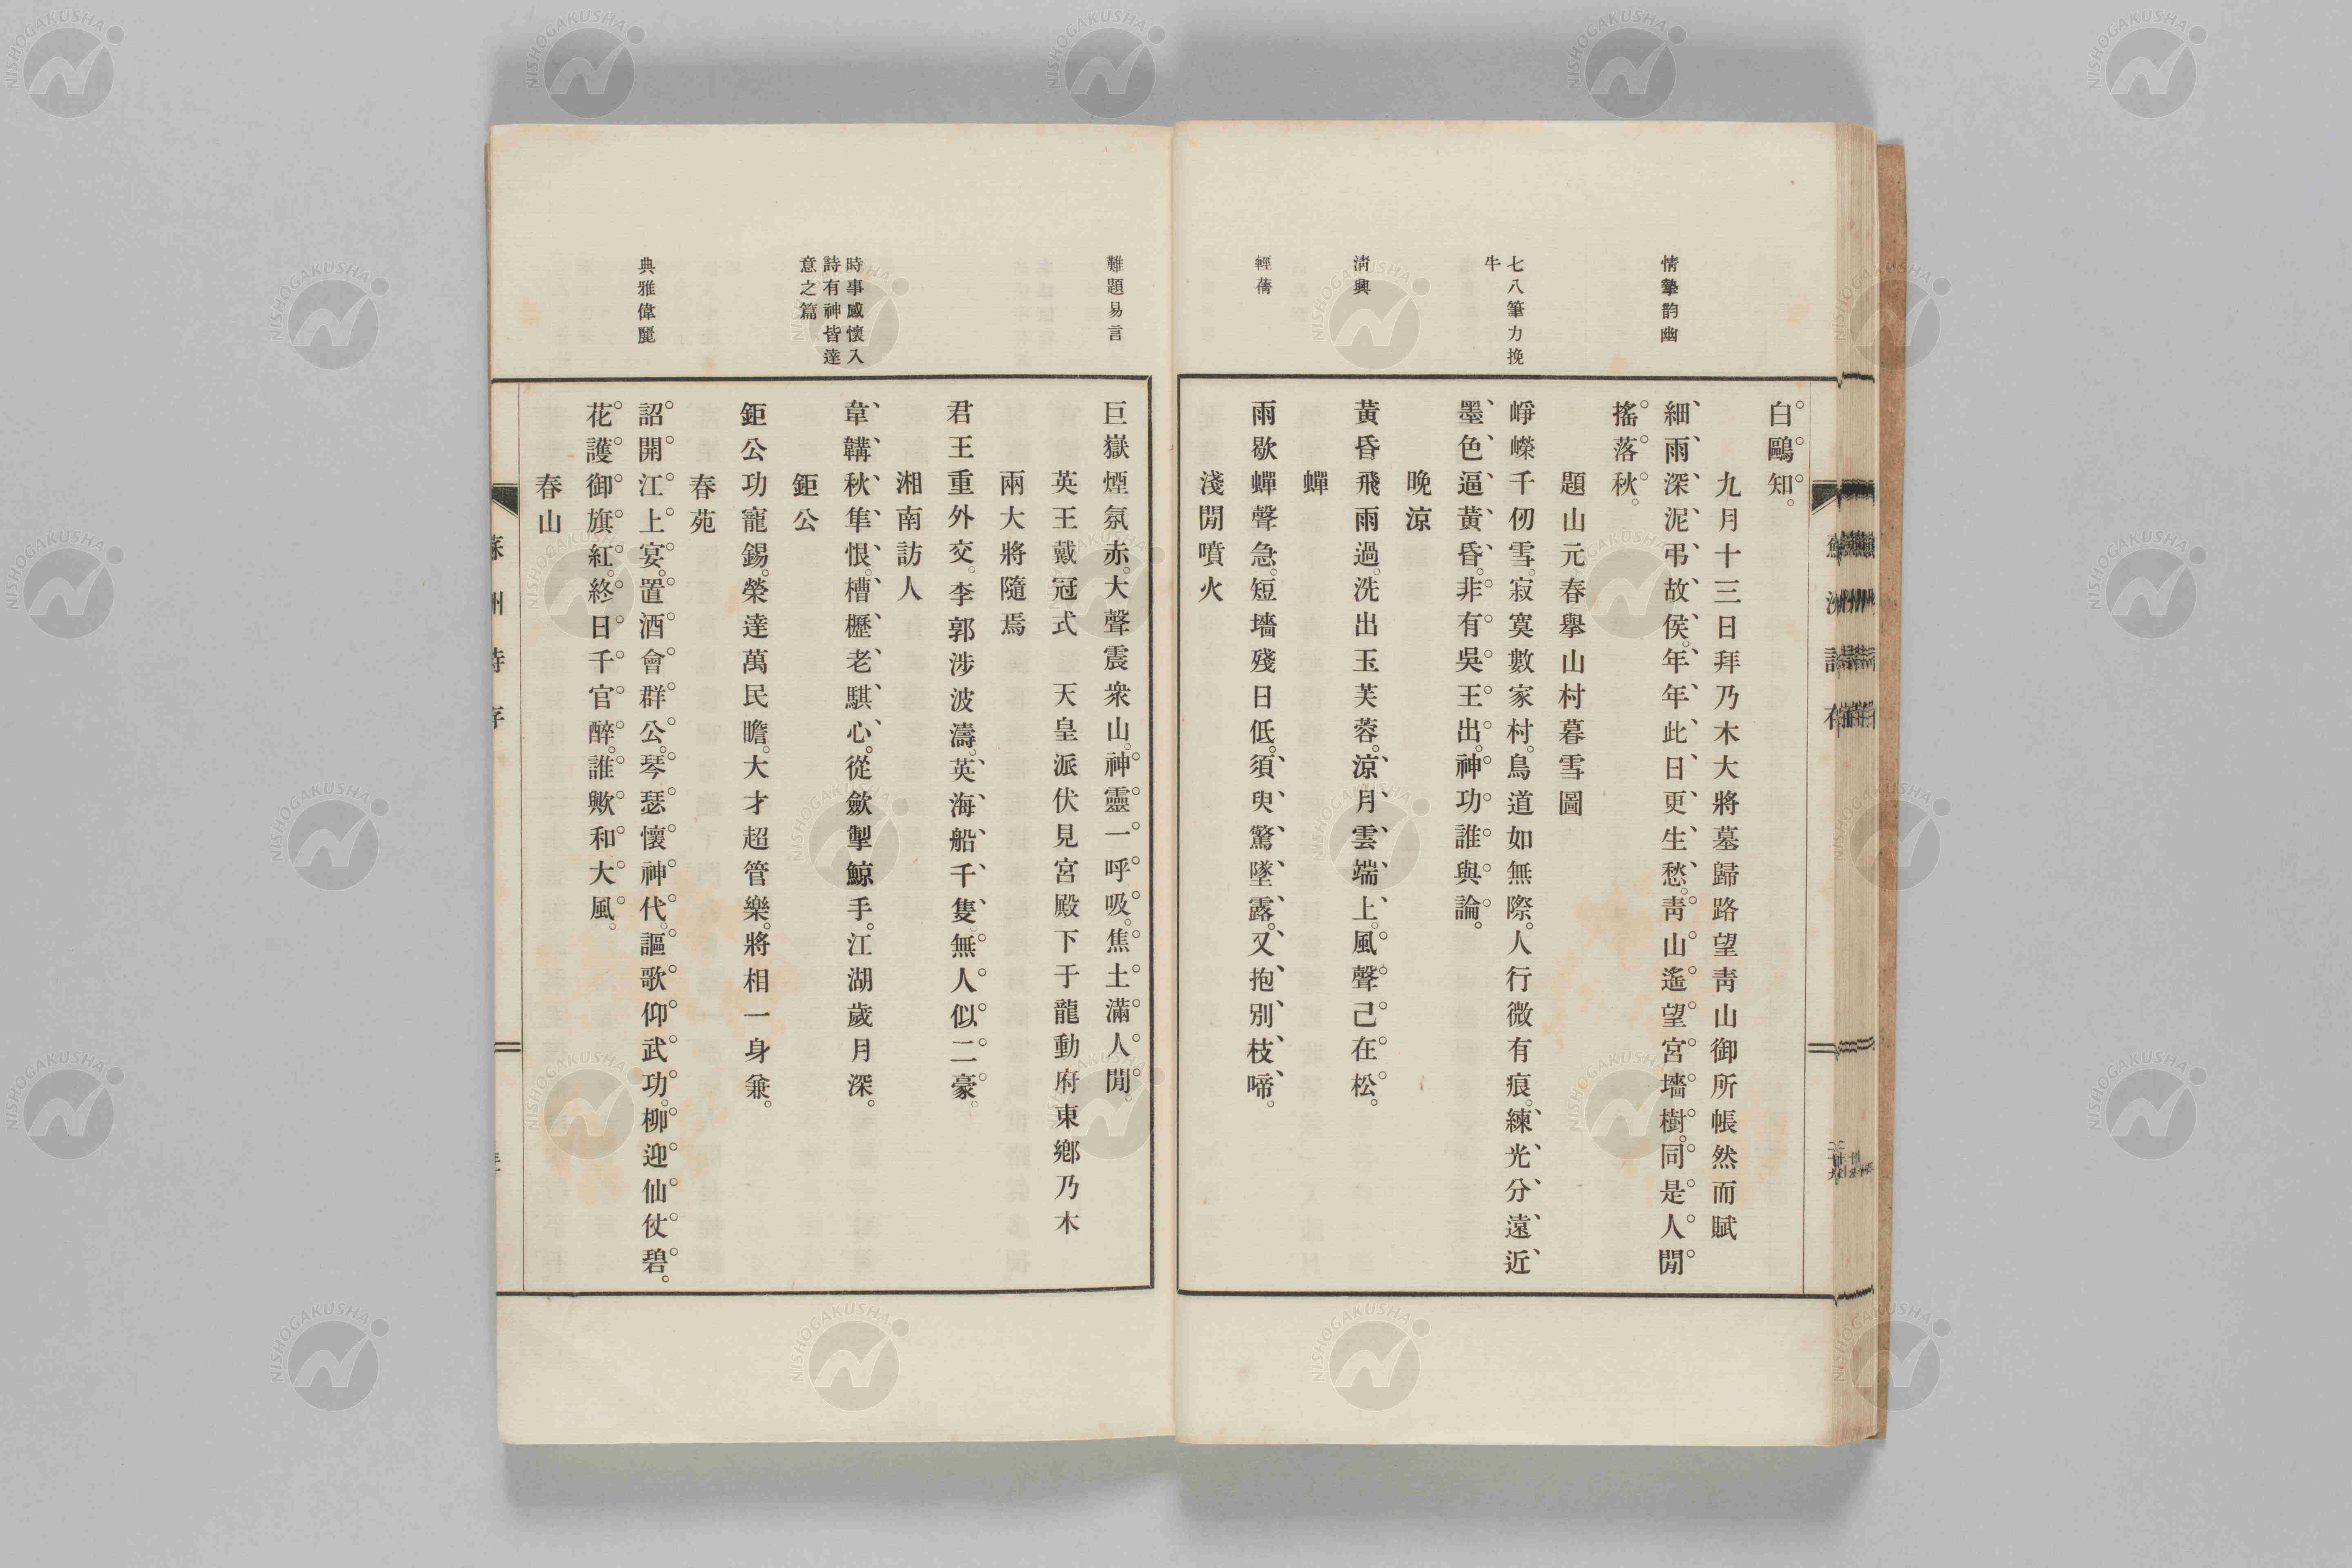 情摯韵幽
七八筆力挽
牛
淸興
輕蒨
白鷗知。
九月十三日拜乃木大將墓歸路望靑山御所悵然而賦
細雨深泥弔故侯。年年此日更生愁。靑山遙望宮墻樹。同是人閒
搖落秋。
題山元春擧山村暮雪圖
崢嶸千仞雪。寂寞數家村。鳥道如無際。人行微有痕。練光分遠近
墨色逼黃昏。非有吳王出。神功誰與論。
晚涼
黃昏飛雨過。洗出玉芙蓉。涼月雲端上。風聲已在松。
蟬
雨歇蟬聲急。短墻殘日低。須臾驚墜露。又抱別枝啼。
淺閒噴火
難題易言
時事感懷入
詩有神皆達
意之篇
典雅偉麗
巨嶽煙氛赤。大聲震衆山。神靈一呼吸。焦土滿人閒。
英王戴冠式　天皇派伏見宮殿下于龍動府東鄕乃木
兩大將隨焉
君王重外交。李郭涉波濤。英海船千隻。無人似二豪。
湘南訪人
韋韝秋隼恨。槽櫪老騏心。從斂掣鯨手。江湖歲月深。
鉅公
鉅公功寵錫。榮達萬民瞻。大才超管樂。將相一身兼。
春苑
詔開江上宴。置酒會群公。琴瑟懷神代。謳歌仰武功。柳迎仙仗碧。
花護御旗紅。終日千官醉。誰歟和大風。
春山